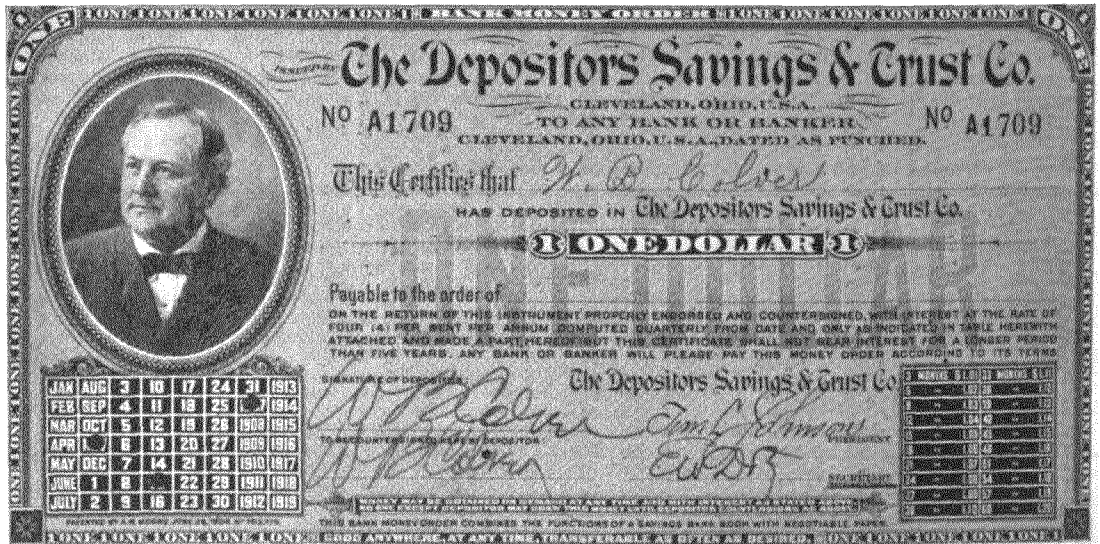 BANK MONEY ORDER
ONE ONE
ISSUED BY The Depositors Savings & Trust Co.
CLEVELAND, OHIO, U.S.A.
No A1709 TO ANY BANK OR BANKER No A1709
CLEVELAND, OHIO, U.S.A., DATED AS PUNCHED.
This Certifies that W. B. Colver
HAS DEPOSITED IN The Depositors Savings & Trust Co.
1 ONE DOLLAR 1
ONE DOLLAR
Payable to the order of
ON THE RETURN OF THIS INSTRUMENT PROPERLY ENDORSED AND COUNTERSIGNED, WITH INTEREST AT THE RATE OF
FOUR (4) PER CENT PER ANNUM COMPUTED QUARTERLY FROM DATE AND ONLY AS INDICATED IN TABLE HEREWITH
ATTACHED AND MADE A PART HEREOF BUT THIS CERTIFICATE SHALL NOT BEAR INTEREST FOR A LONGER PERIOD
THAN FIVE YEARS. ANY BANK OR BANKER WILL PLEASE PAY THIS MONEY ORDER ACCORDING TO ITS TERMS
SIGNATURE OF DEPOSITOR The Depositors Savings & Trust Co
W B Colver Tom L Johnson
PRESIDENT
TO BE COUNTERSIGNED HERE BY DEPOSITOR
W B Colver
SECRETARY
JAN AUG 3 10 17 24 31 1913
FEB SEP 4 11 18 25 1914
MAR OCT 5 12 19 26 1908 1915
APR 6 13 20 27 1909 1916
MAY DEC 7 14 21 28 1910 1917
JUNE 1 8 22 29 1911 1918
JULY 2 9 16 23 30 1912 1919
THIS BANK MONEY ORDER COMBINES THE FUNCTIONS OF A SAVINGS BANK BOOK WITH NEGOTIABLE PAPER
GOOD ANYWHERE, AT ANY TIME, TRANSFERABLE AS OFTEN AS DESIRED.